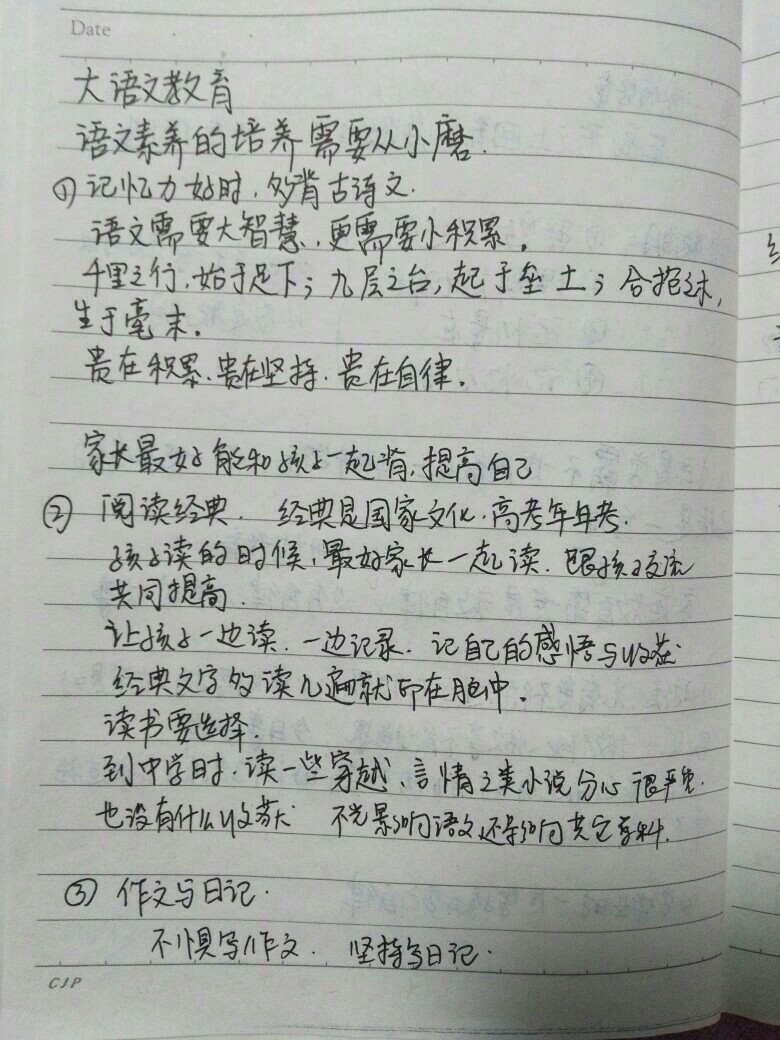 Date
大语文教育
语文素养的培养需要从小磨.
① 记忆力好时,多背古诗文.
语文需要大智慧,更需要小积累。
千里之行,始于足下;九层之台,起于垒土;合抱之木,
生于毫末。
贵在积累.贵在坚持.贵在自律。
家长最好能和孩子一起背,提高自己
② 阅读经典. 经典是国家文化.高考年年考.
孩子读的时候,最好家长一起读.跟孩子交流
共同提高.
让孩子一边读.一边记录.记自己的感悟与收获
经典文字多读几遍就印在脑中。
读书要选择.
到中学时.读一些穿越、言情之类小说分心很严重.
也没有什么收获 不光影响语文,还影响其它学科.
③ 作文与日记.
不惧写作文. 坚持写日记.
CJP